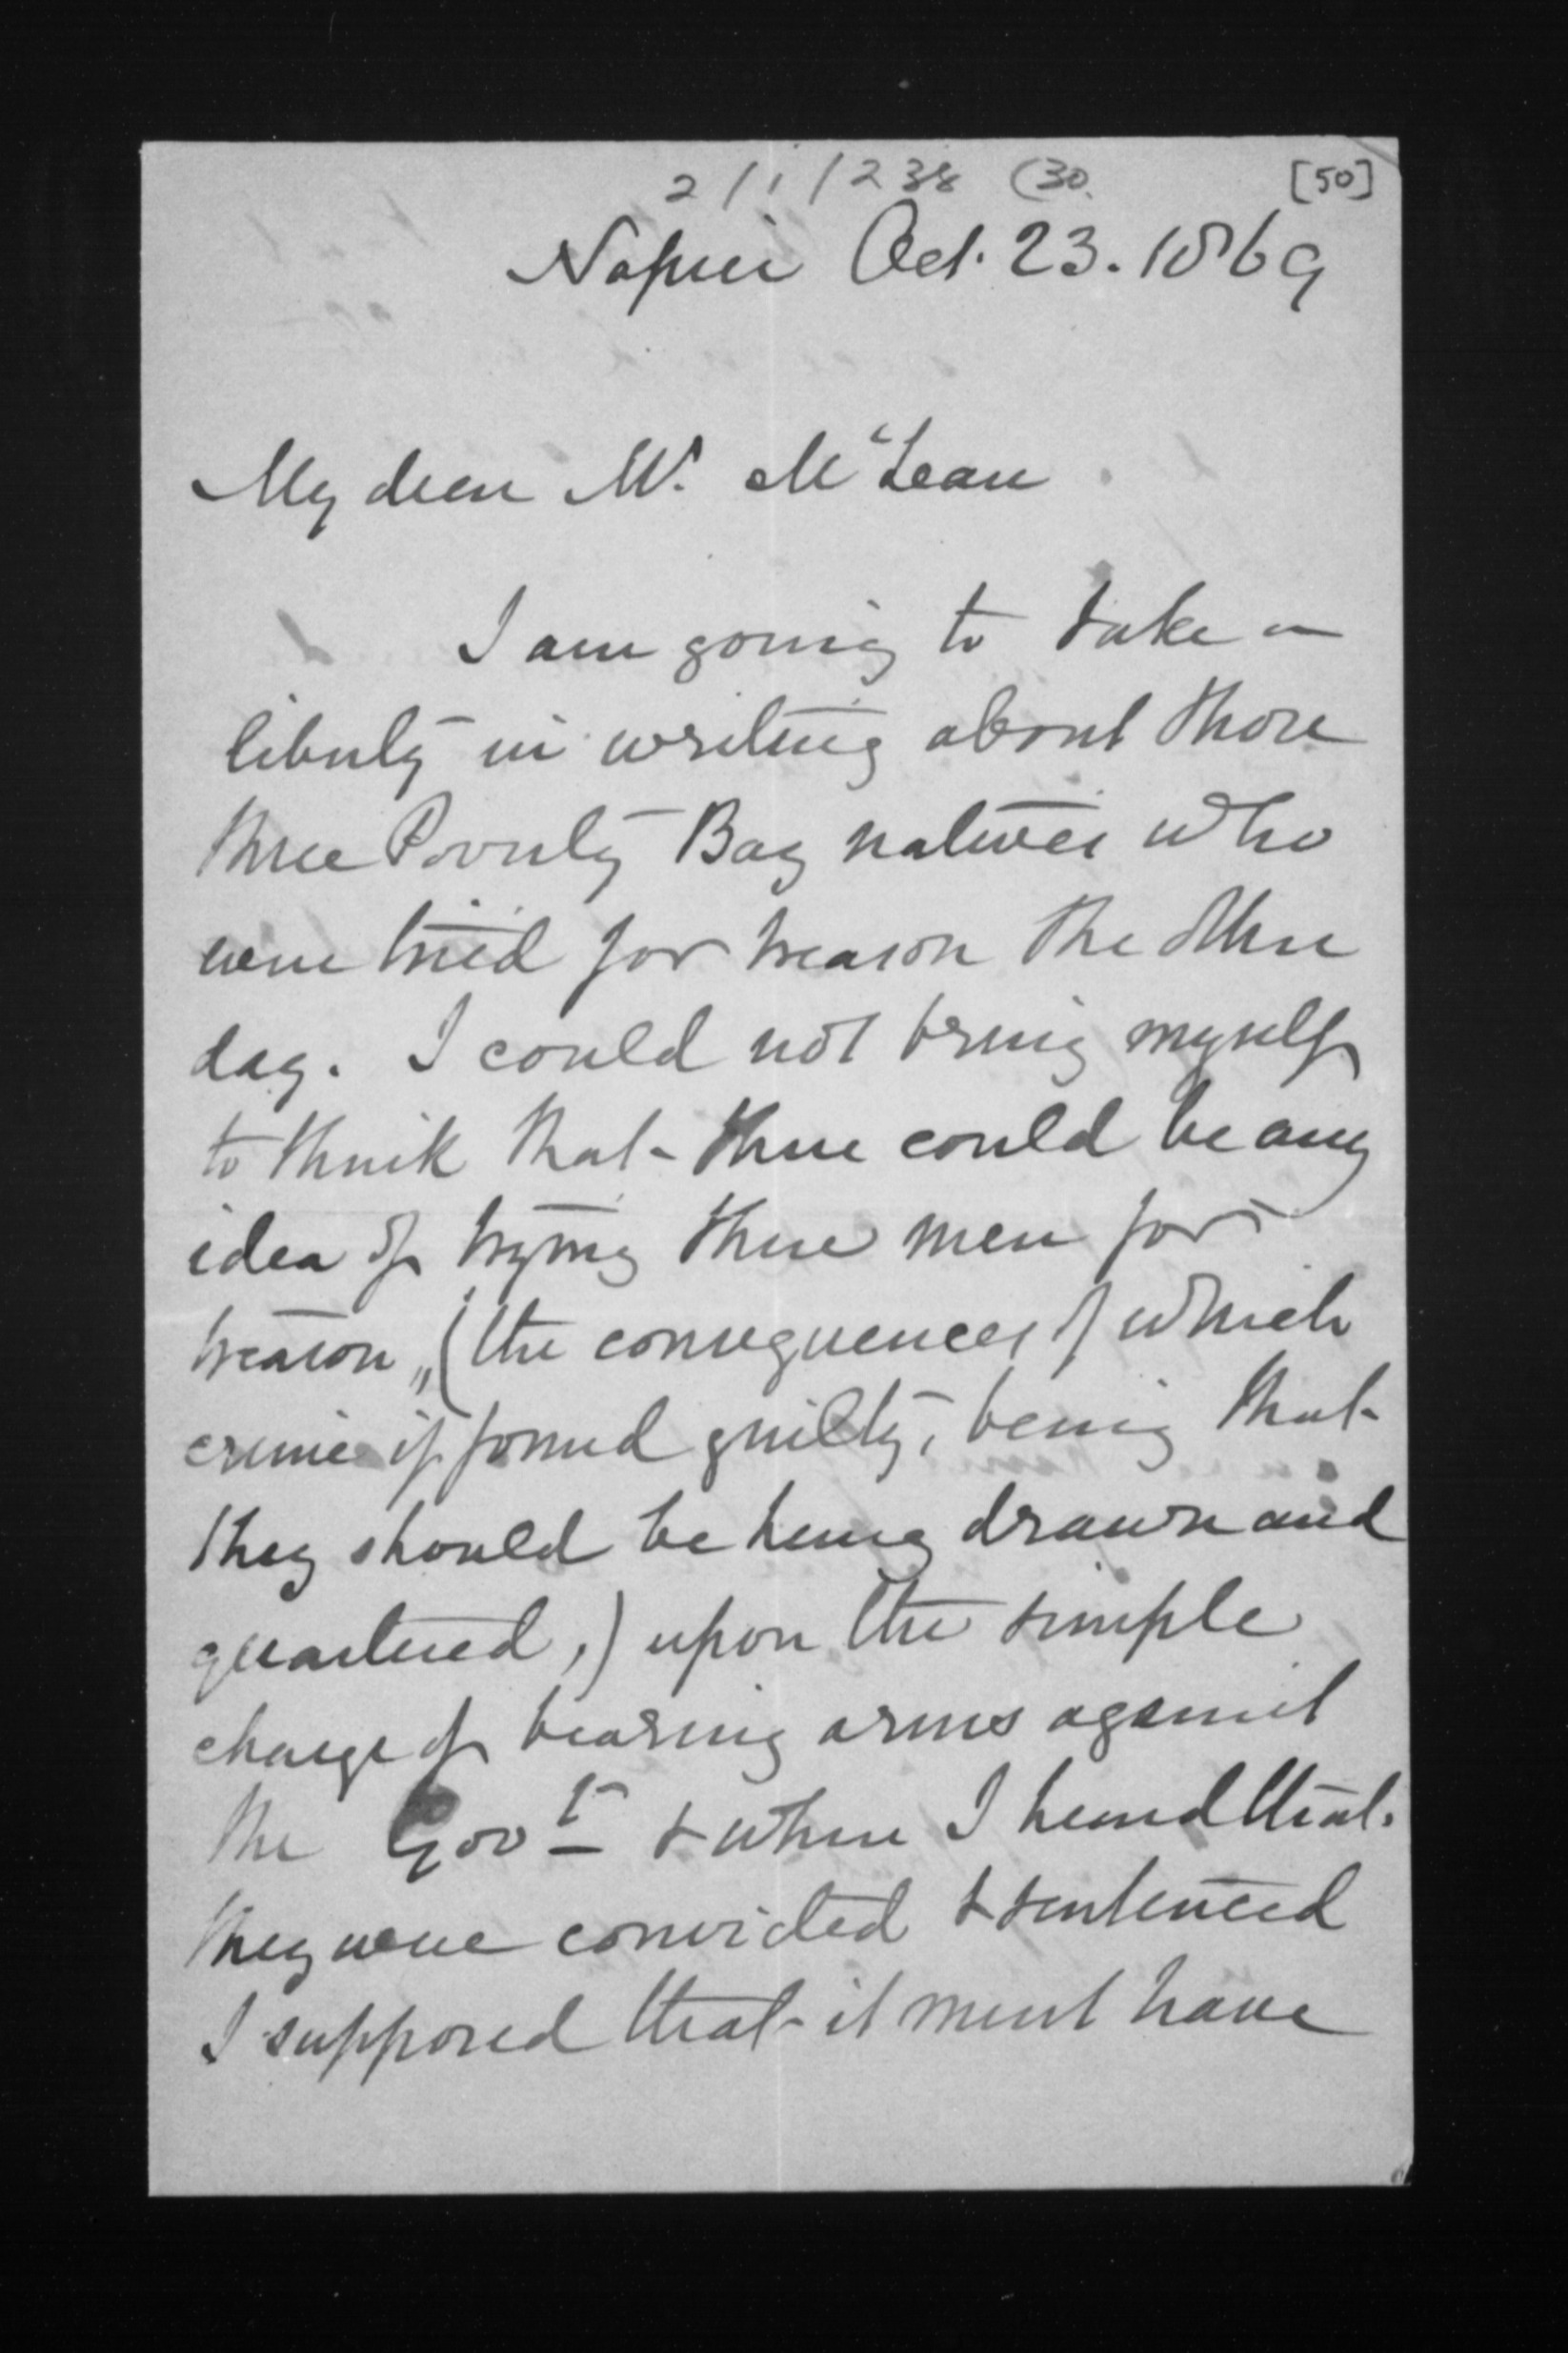 2/1/238 (30. [50]
Napier Oct. 23. 1869
My dear Mr. McLean
I am going to take a
liberty in writing about those
three Poverty Bay natives who
were tried for treason the other
day. I could not bring myself
to think that there could be any
idea of trying these men for
treason, (the consequences of which
crime if found guilty, being that
they should be hung drawn and
quartered,) upon the simple
charge of bearing arms against
the Govt & when I heard that
they were convicted & sentenced
I supposed that it must have